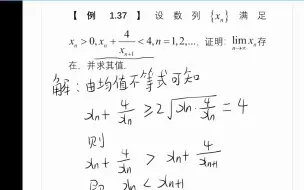 【例 1.37】设数列 {xₙ} 满足
xₙ > 0, xₙ + 4/xₙ₊₁ < 4, n = 1, 2, …, 证明: lim_{n→∞} xₙ 存
在, 并求其值.
解: 由均值不等式可知
xₙ + 4/xₙ ≥ 2√(xₙ · 4/xₙ) = 4
则
xₙ + 4/xₙ > xₙ + 4/xₙ₊₁
即 xₙ < xₙ₊₁